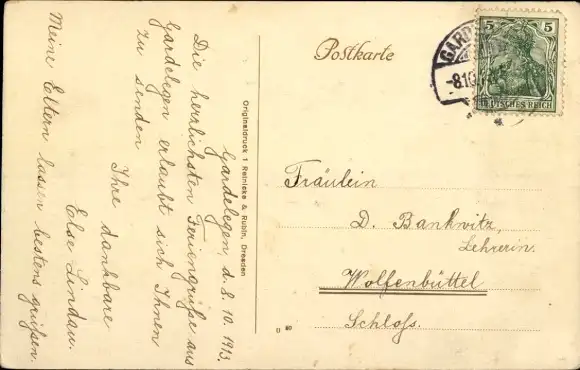 Gardelegen, d. 8. 10. 1913.
Die herzlichsten Feriengrüße aus
Gardelegen erlaubt sich Ihnen
zu sinden
Ihre dankbare
Else Lindau.
Meine Eltern lassen bestens grüßen.
Originaldruck 1 Reinicke & Rubin, Dresden
Postkarte
5 5
DEUTSCHES REICH
GARD
-8.10.
Fräulein
D. Bankwitz,
Lehrerin.
Wolfenbüttel
Schloß.